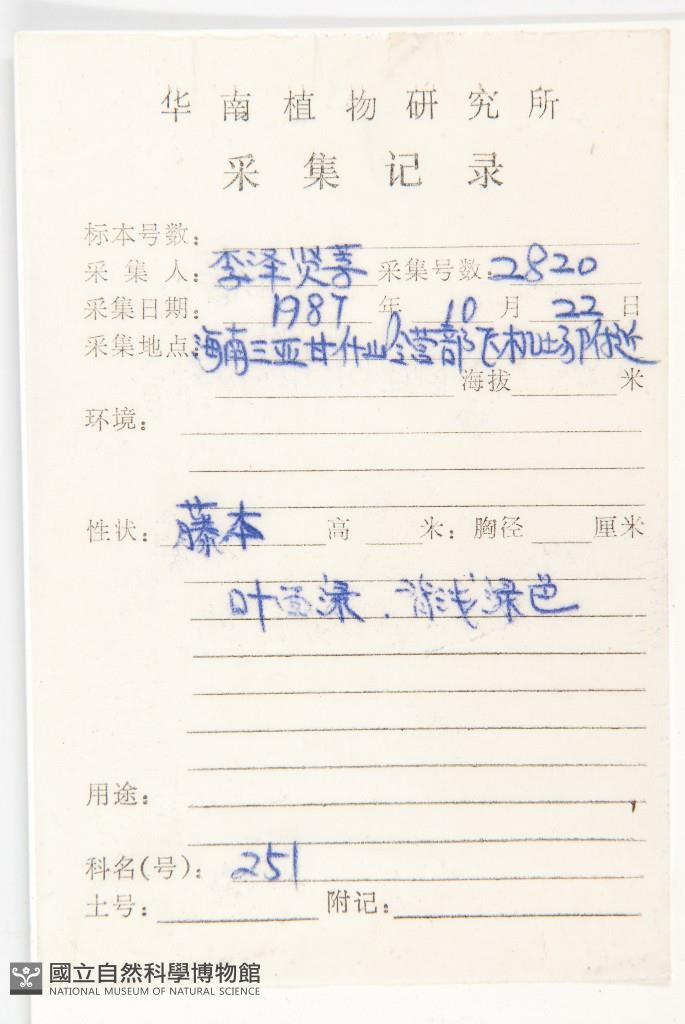 华南植物研究所
采集记录
标本号数:
采集人: 李泽贤等 采集号数: 2820
采集日期: 1987 年 10 月 22 日
采集地点: 海南三亚甘什岭营部飞机场附近
海拔 米
环境:
性状: 藤本 高 米: 胸径 厘米
叶面绿.背浅绿色
用途:
科名(号): 251
土号: 附记:
國立自然科學博物館
NATIONAL MUSEUM OF NATURAL SCIENCE